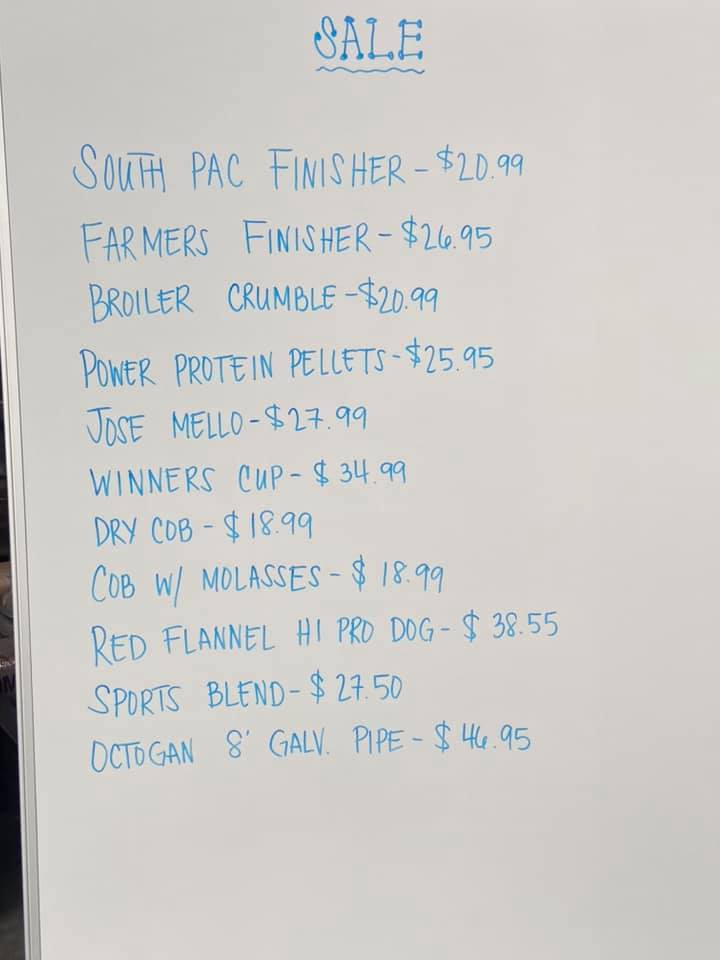 SALE
SOUTH PAC FINISHER - $20.99
FARMERS FINISHER - $26.95
BROILER CRUMBLE - $20.99
POWER PROTEIN PELLETS - $25.95
JOSE MELLO - $27.99
WINNERS CUP - $34.99
DRY COB - $18.99
COB W/ MOLASSES - $18.99
RED FLANNEL HI PRO DOG - $38.55
SPORTS BLEND - $27.50
OCTOGAN 8' GALV. PIPE - $46.95